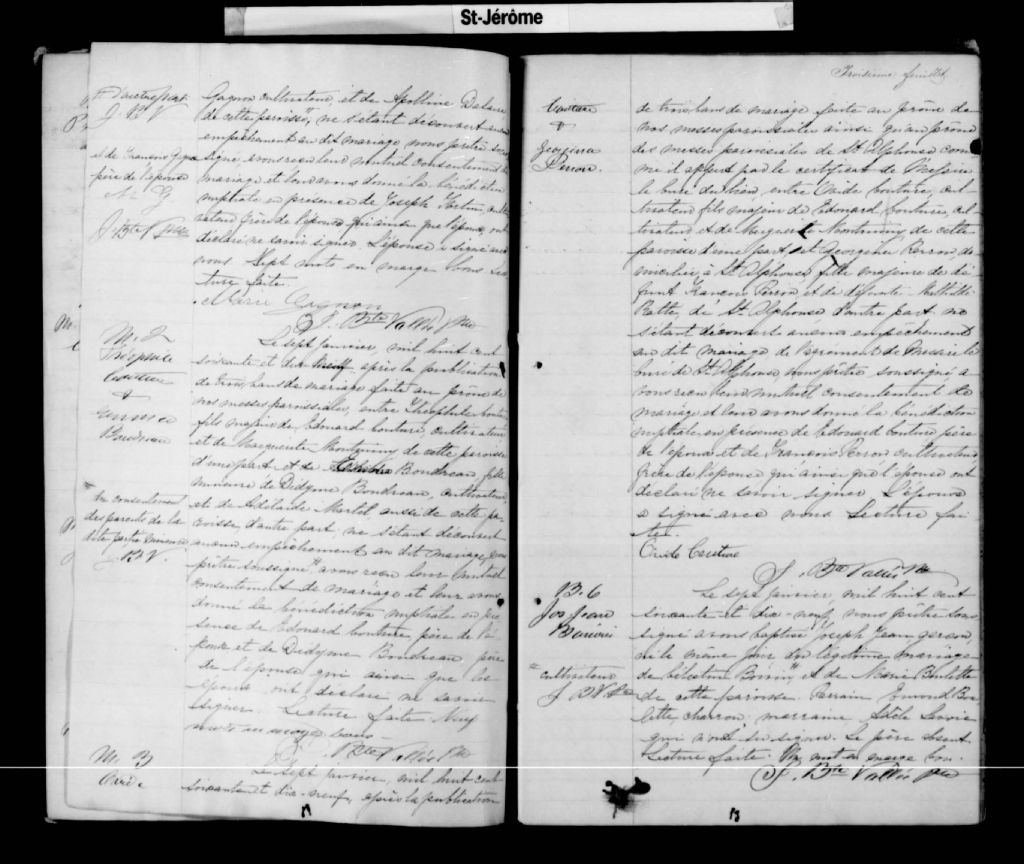 St-Jérôme
Gagnon cultivateur, et de Apolline
de cette paroisse, ne s'étant découvert aucun
empêchement au dit mariage, nous prêtre sous
signé avons reçu leur mutuel consentement de
mariage et leur avons donné la bénédiction
nuptiale en présence de Joseph
frère de l'époux qui ainsi que l'époux ont
déclaré ne savoir signer. L'épouse a signé avec
nous. Sept mots en marge bons. Lec
ture faite.
Marie Gagnon
J. Bte Vallée Ptre
et de François Gagnon
père de l'épouse
M. G.
J. Bte V Ptre
M. 2
Théophile
Couture
&
Boudreau
Le sept janvier, mil huit cent
soixante et dix-neuf après la publication
de trois bans de mariage faite au prône de
nos messes paroissiales, entre Théophile Couture
fils majeur de Edouard Couture, cultivateur
et de Marguerite Montminy de cette paroisse
d'une part et de Boudreau fille
mineure de Didyme Boudreau, cultivateur,
et de Adélaïde Martel aussi de cette pa
roisse, d'autre part, ne s'étant découvert
aucun empêchement au dit mariage, nous
prêtre soussigné avons reçu leur mutuel
consentement de mariage et leur avons
donné la bénédiction nuptiale en pré
sence de Edouard Couture père de l'é
poux et de Didyme Boudreau père
de l'épouse qui ainsi que les
époux ont déclaré ne savoir
signer. Lecture faite. Neuf
mots en marge bons
J. Bte Vallée Ptre
du consentement
des parents de la
dite partie mineure
J. B V.
M. 3
Ovide
Le sept janvier, mil huit cent
soixante et dix-neuf, après la publication
Troisième feuillet
Couture
&
Georgina
Perron.
de trois bans de mariage faite au prône de
nos messes paroissiales ainsi qu'au prône
des messes paroissiales de St Alphonse com
me il appert par le certificat de Messire
le curé du lieu, entre Ovide Couture, cul
tivateur fils majeur de Edouard Couture, cul
tivateur et de Marguerite Montminy de cette
paroisse d'une part, et Georgina Perron, do
miciliée à St Alphonse fille majeure de dé
funt François Perron et de défunte Mathilde
Ratté, de St Alphonse d'autre part ne
s'étant découvert aucun empêchement
au dit mariage de l'agrément de Messire le
curé de St Alphonse, nous prêtre soussigné a
vons reçu leur mutuel consentement de
mariage et leur avons donné la bénédiction
nuptiale en présence de Edouard Couture père
de l'époux et de François Perron cultivateur
frère de l'épouse qui ainsi que l'épouse ont
déclaré ne savoir signer. L'époux
a signé avec nous. Lecture fai
te.
Ovide Couture
J. Bte Vallée Ptre
B. 6
Jos Jean
Le sept janvier, mil huit cent
soixante et dix-neuf, nous prêtre sous
signé avons baptisé Joseph Jean
né le même jour du légitime mariage
de Célestin et de Marie Boulette
de cette paroisse. Parrain Edmond Bou
lette, charron; marraine, Adèle Savoie
qui n'ont su signer. Le père absent.
Lecture faite. Un mot en marge bon.
J. Bte Vallée Ptre
cultivateur
J. B V Ptre